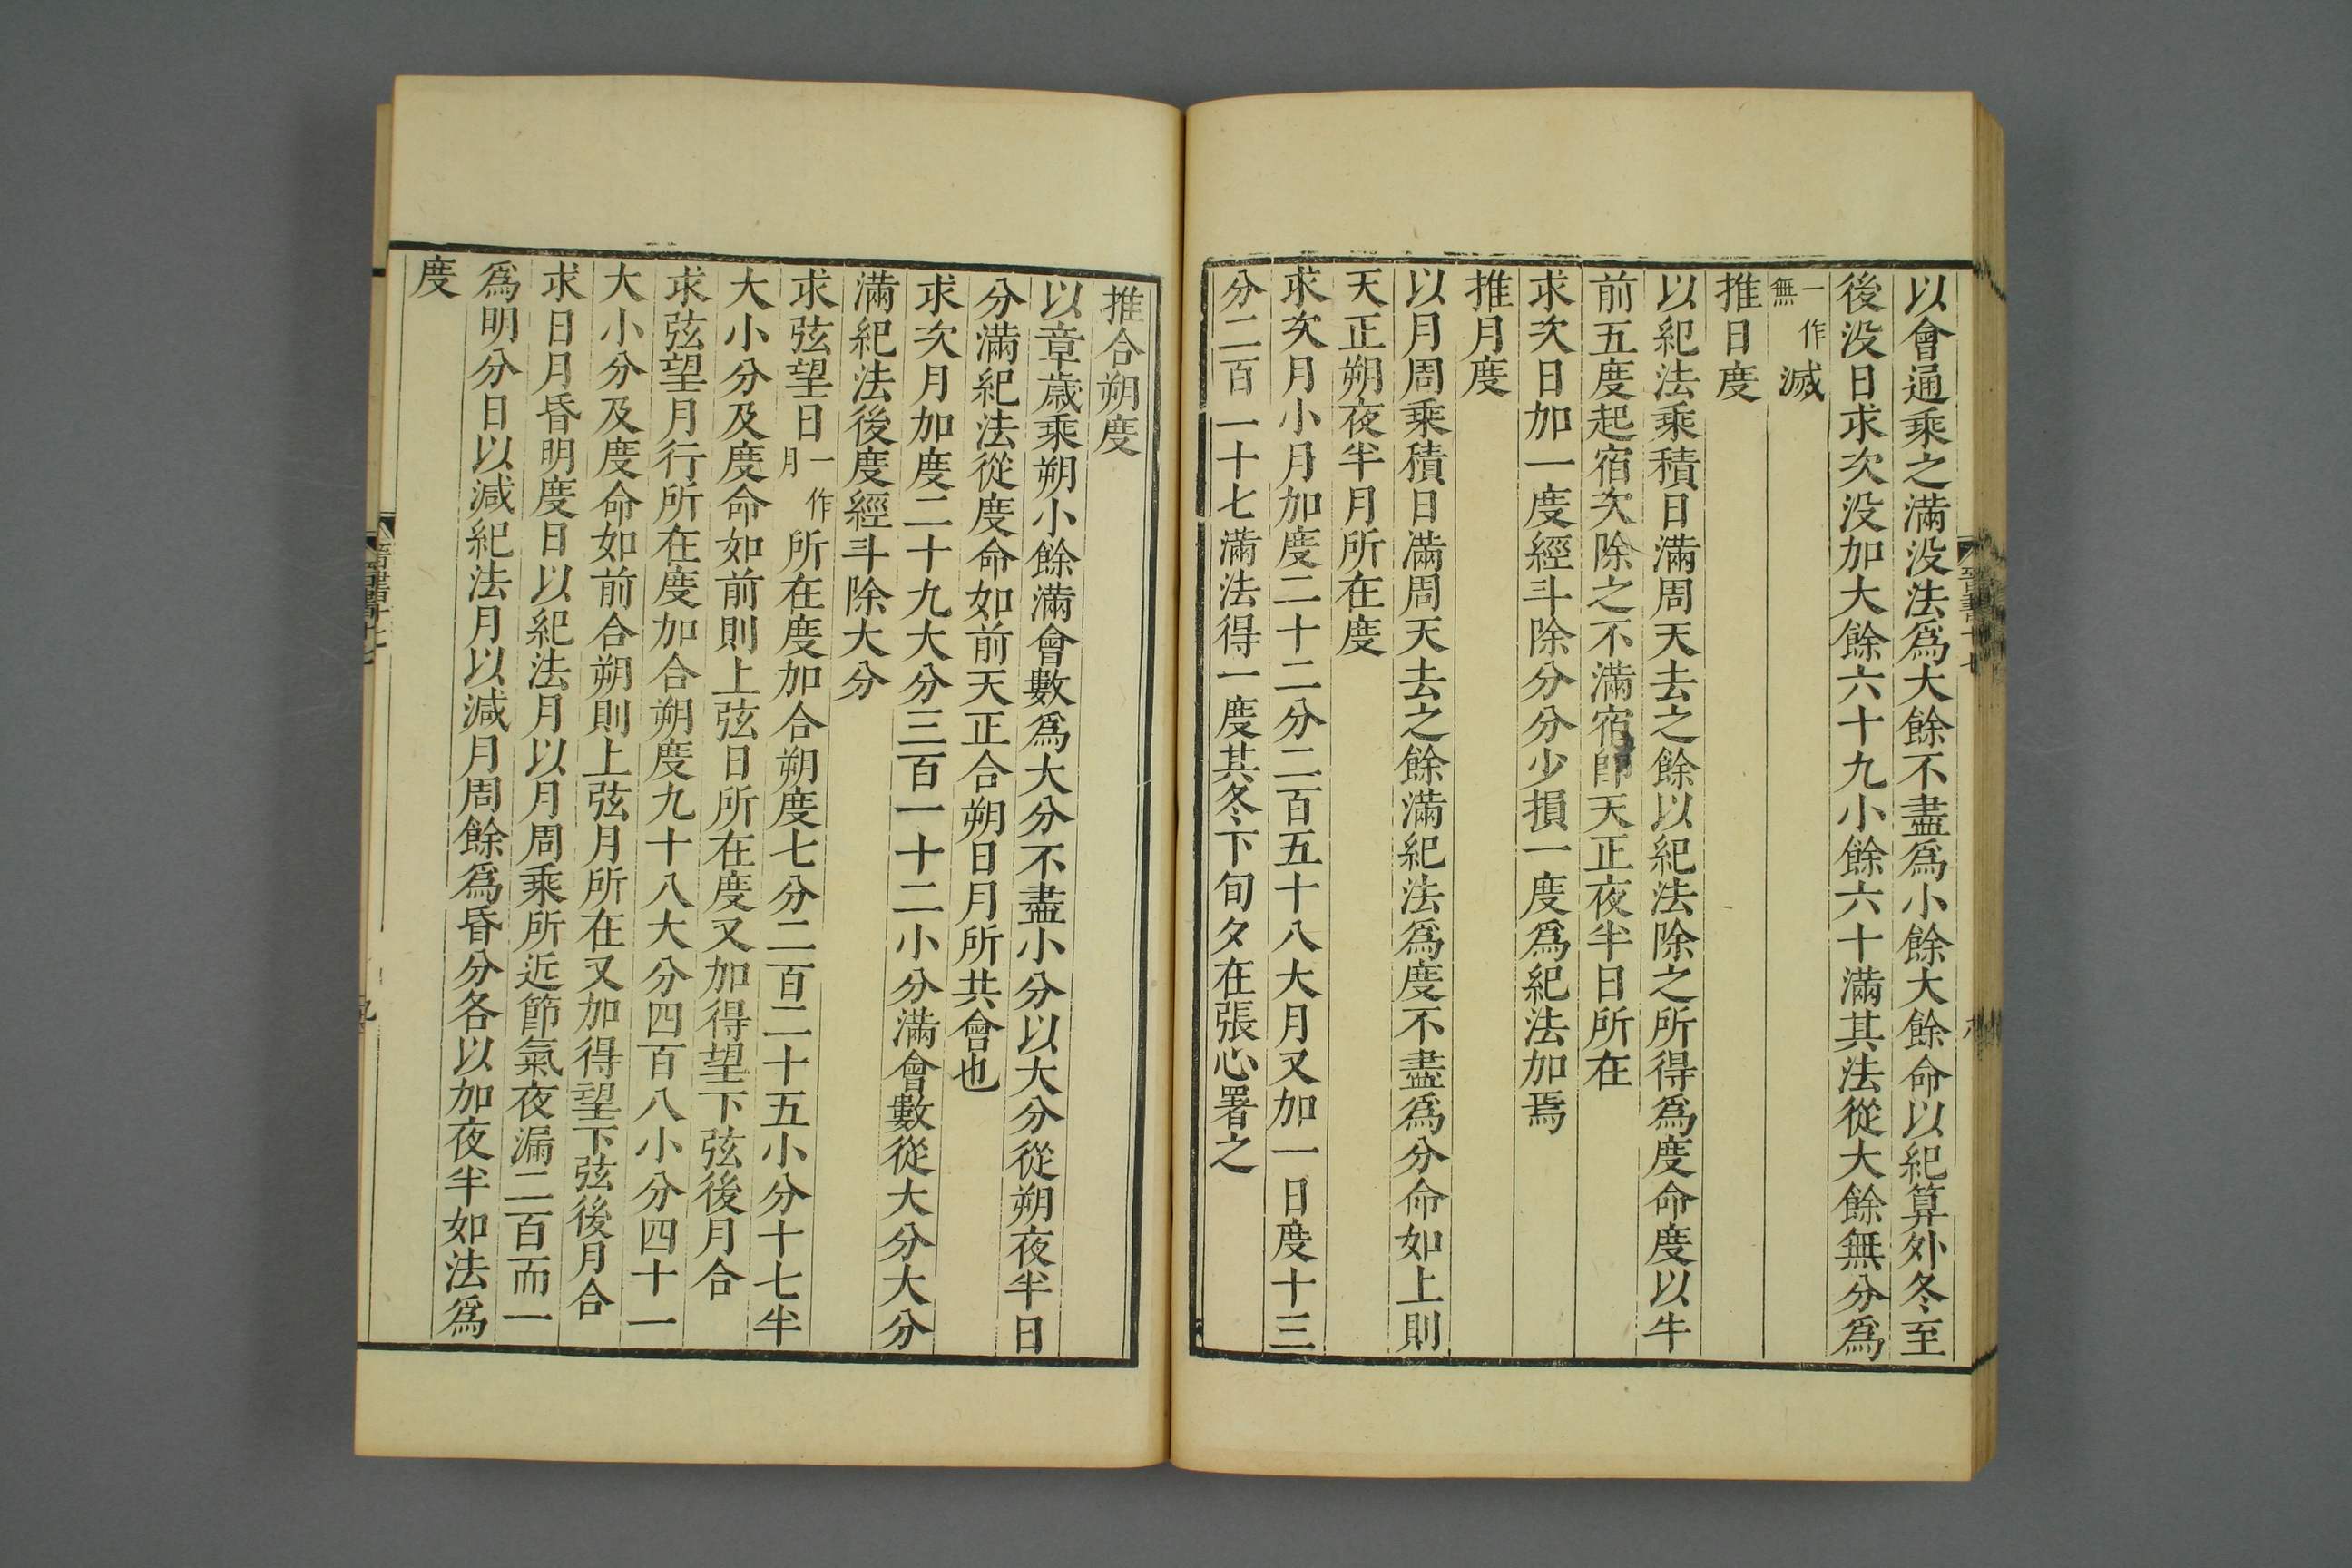 以會通乘之滿没法爲大餘不盡爲小餘大餘命以紀算外冬至
後没日求次没加大餘六十九小餘六十滿其法從大餘無分爲
一作無滅
推日度
以紀法乘積日滿周天去之餘以紀法除之所得爲度命度以牛
前五度起宿次除之不滿宿即天正夜半日所在
求次日加一度經斗除分分少損一度爲紀法加焉
推月度
以月周乘積日滿周天去之餘滿紀法爲度不盡爲分命如上則
天正朔夜半月所在度
求次月小月加度二十二分二百五十八大月又加一日度十三
分二百一十七滿法得一度其冬下旬夕在張心署之
推合朔度
以章歲乘朔小餘滿會數爲大分不盡小分以大分從朔夜半日
分滿紀法從度命如前天正合朔日月所共會也
求次月加度二十九大分三百一十二小分滿會數從大分大分
滿紀法後度經斗除大分
求弦望日一作月所在度加合朔度七分二百二十五小分十七半
大小分及度命如前則上弦日所在度又加得望下弦後月合
求弦望月行所在度加合朔度九十八大分四百八小分四十一
大小分及度命如前合朔則上弦月所在又加得望下弦後月合
求日月昏明度日以紀法月以月周乘所近節氣夜漏二百而一
爲明分日以減紀法月以減月周餘爲昏分各以加夜半如法爲
度
晉書十七